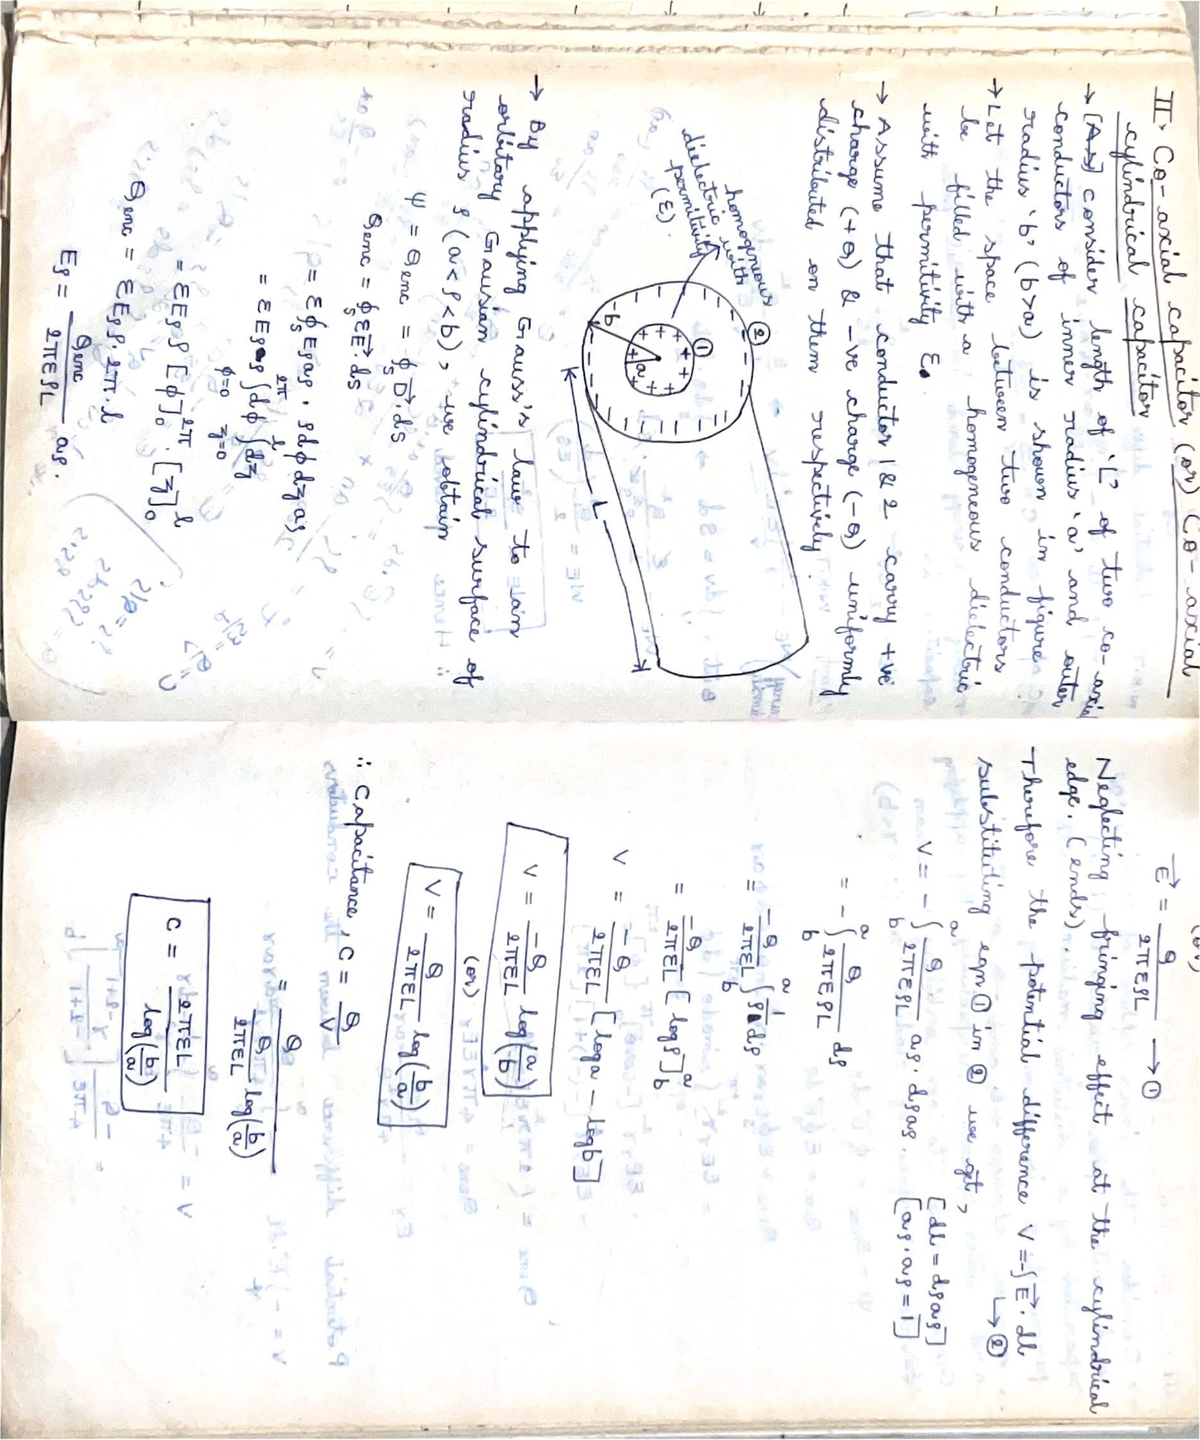 II, Co-axial capacitor (or) Co-axial
cylindrical capacitor
→ [As] consider length of 'L' of two co-axial
conductors of inner radius 'a' and outer
radius 'b' (b>a) is shown in figure
→ Let the space between two conductors
be filled with a homogeneous dielectric
with permitivity ε.
→ Assume that conductor 1 & 2 carry +ve
charge (+Q) & -ve charge (-Q) uniformly
distributed on them respectively.
homoginous
dielectric with
permitivity
(ε).
①
②
a
b
L
→ By applying Gauss's law to an
orbitary Gaussian cylindrical surface of
radius ρ (a<ρ<b), we obtain
ψ = Qenc = ∮s D⃗.ds
Qenc = ∮s εE⃗.ds
= ε∮s Eρaρ. ρdφdz aρ
= εEρρ ∫φ=0^2π dφ ∫z=0^l dz
= εEρρ [φ]0^2π . [z]0^l
Qenc = εEρρ.2π.l
Eρ = Qenc / 2περL aρ.
(or)
E⃗ = Q / 2περL → ①
Neglecting fringing effect at the cylindrical
edge. (ends).
Therefore the potential difference V = -∫E⃗.dl
↳ ②
substituting eqn ① in ② we get,
V = - ∫b^a Q / 2περL aρ. dρaρ. [dl = dρaρ]
[aρ.aρ = 1]
= - ∫b^a Q / 2περL dρ
= -Q / 2πεL ∫b^a 1/ρ dρ
= -Q / 2πεL [logρ]b^a
V = -Q / 2πεL [log a - log b]
V = -Q / 2πεL log(a/b)
(or)
V = Q / 2πεL log(b/a)
∴ Capacitance, C = Q / V
= Q / Q/2πεL log(b/a)
C = 2πεL / log(b/a)